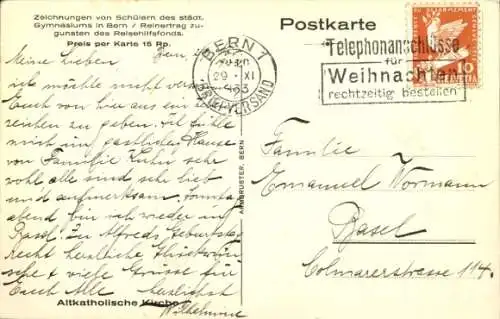 Zeichnungen von Schülern des städt.
Gymnasiums in Bern / Reinertrag zu-
gunsten des Reisehilfsfonds.
Preis per Karte 15 Rp.
Postkarte
BERN 1
29. XI
BRIEFVERSAND
Telephonanschlüsse
für
Weihnachten
rechtzeitig bestellen
10
HELVETIA
Meine Lieben
Bern
ich möchte nicht
Euch von hier aus ein
zeichen zu geben. Ich fühle
mich im gastlichen Hause
von Familie sehr
wohl alle sind sehr lieb
und aufmerksam. Sonntag
abend bin ich wieder in
Basel. Zu Alfreds Geburtstag
recht herzliche Glückwün-
sche & viele Grüsse für
Euch Alle herzlichst
ARMBRUSTER, BERN
Familie
Emanuel Wormann
Basel
Colmarerstrasse 114.
Altkatholische Kirche